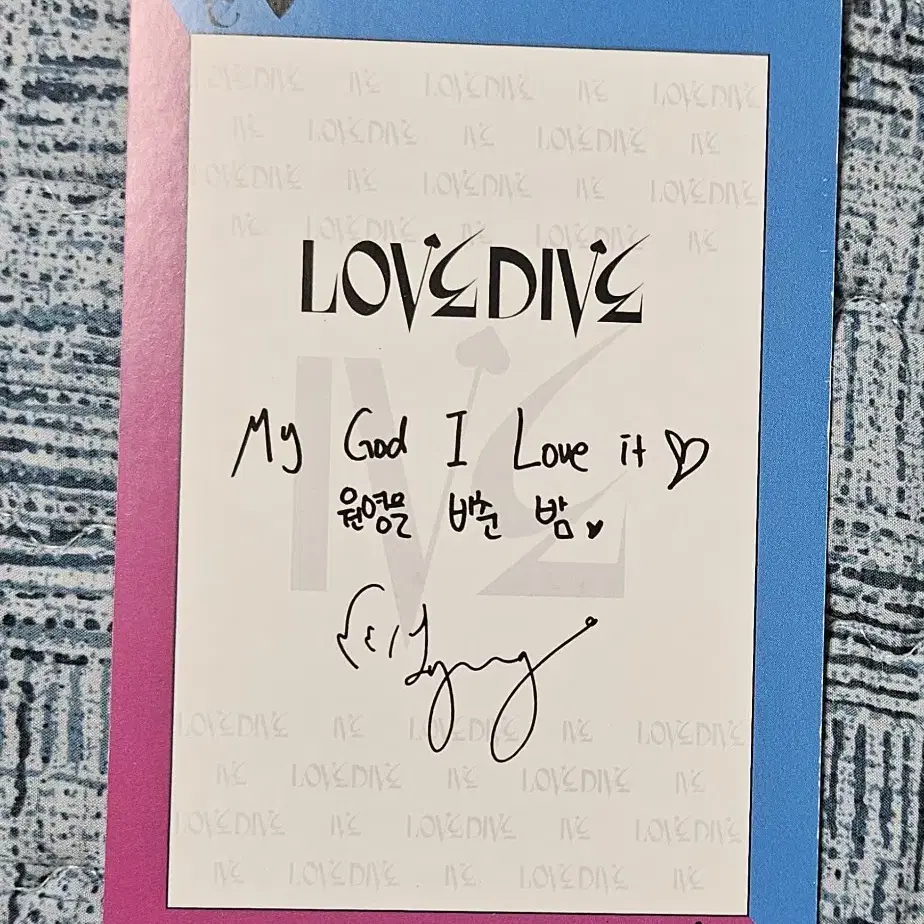 LOVE DIVE IVE LOVE DIVE IVE LOVE DIVE
IVE LOVE DIVE IVE LOVE DIVE IVE
LOVE DIVE IVE LOVE DIVE IVE LOVE DIVE
IVE LOVE DIVE IVE LOVE DIVE IVE
LOVE DIVE
IVE
My God I Love it ♡
원영은 밤 ♥
LOVE DIVE IVE LOVE DIVE IVE LOVE DIVE
IVE LOVE DIVE IVE LOVE DIVE IVE
LOVE DIVE IVE LOVE DIVE IVE LOVE DIVE
IVE LOVE DIVE IVE LOVE DIVE IVE